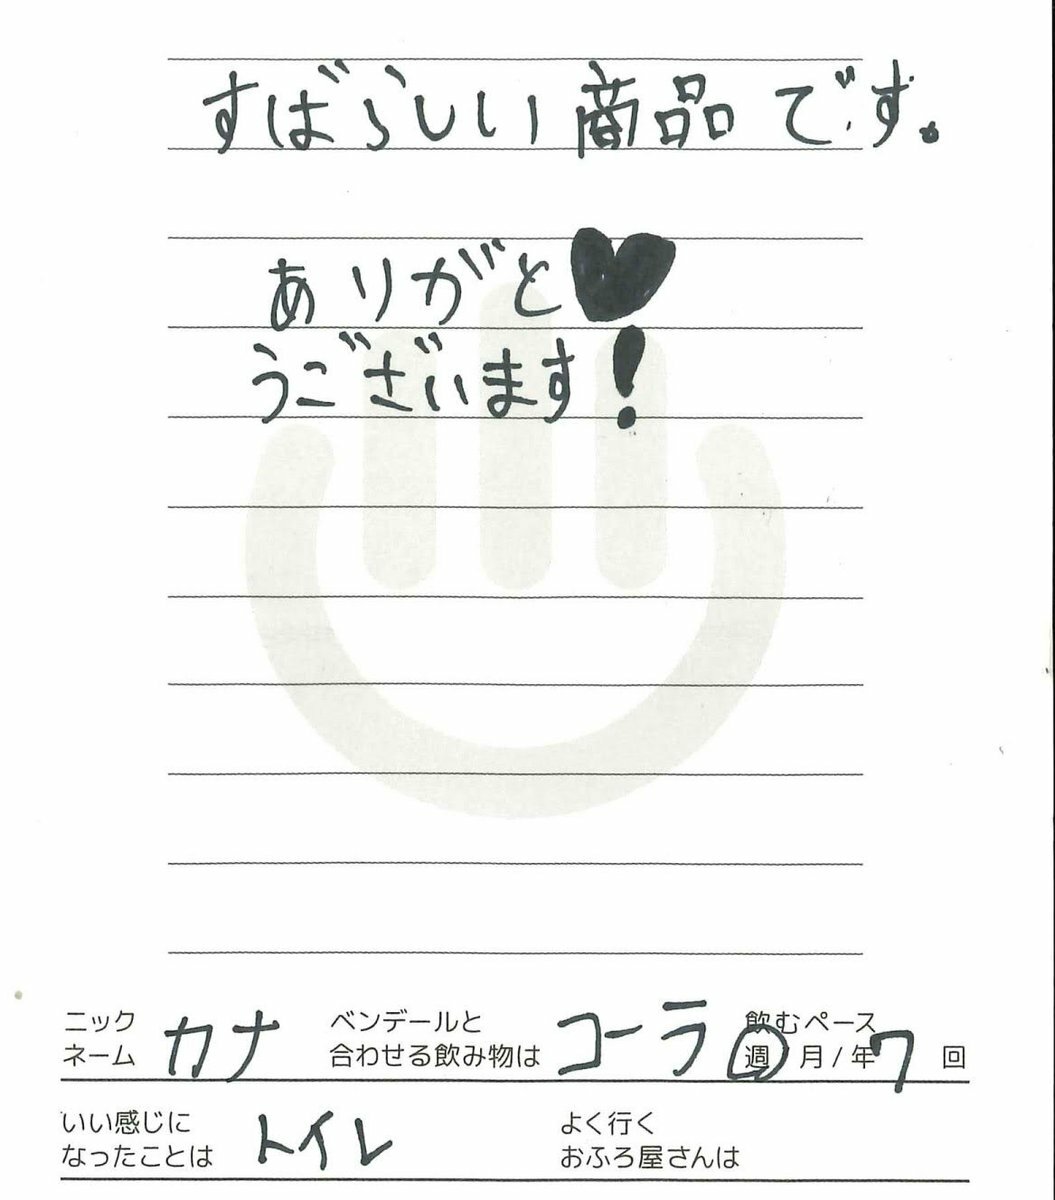 すばらしい商品です。
ありがと♥
うございます!
ニック
ネーム カナ
ベンデールと
合わせる飲み物は コーラ
飲むペース
週/月/年 7 回
いい感じに
なったことは トイレ
よく行く
おふろ屋さんは